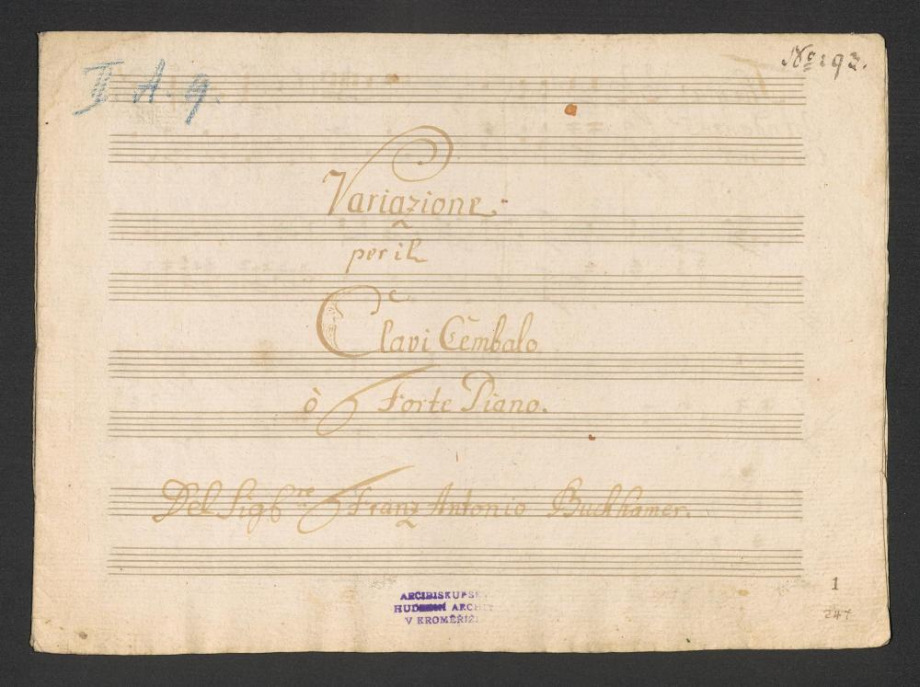 II A. 9
No 292.
Variazione
per il
Clavi Cembalo
ò Forte Piano.
Del Sigre Franz Antonio Buckhamer.
ARCIBISKUPSK
HUDEBNÍ ARCHIV
V KROMĚŘÍŽI
1
247